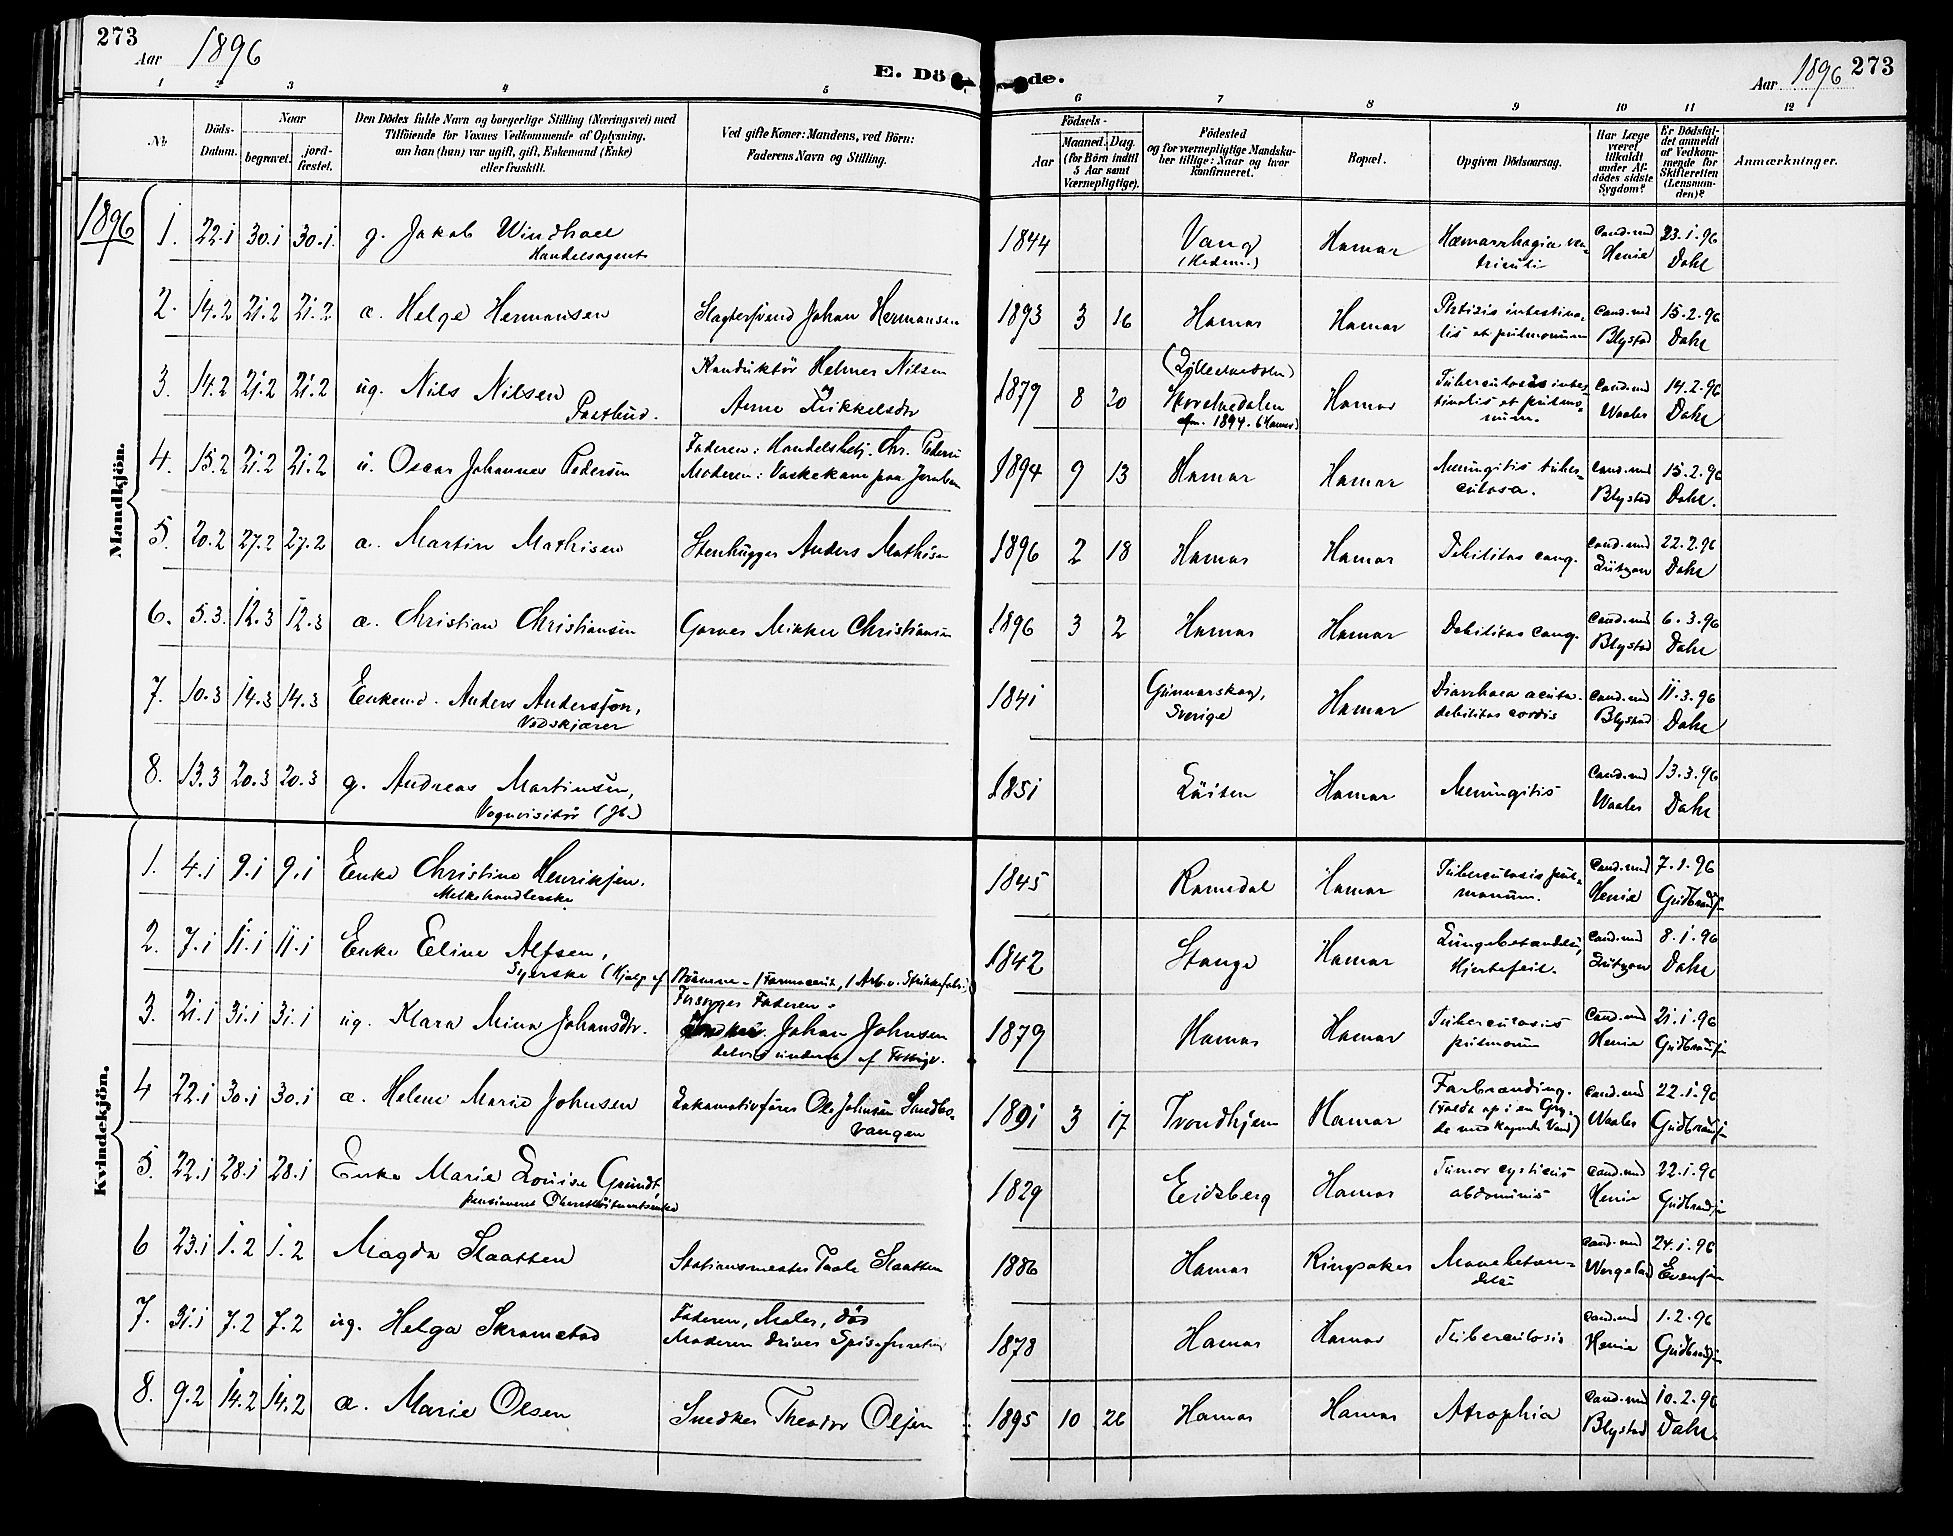 273
Aar 1896
E. Dö
de.
Aar 1896 273
1 2 3 4 5 6 7 8 9 10 11 12
Nr.
Döds-
Datum.
Naar
begravet.
jord-
fæstet.
Den Dödes fulde Navn og borgerlige Stilling (Næringsvei) med
Tilföiende for Voxnes Vedkommende af Oplysning,
om han (hun) var ugift, gift, Enkemand (Enke)
eller fraskilt.
Ved gifte Koner: Mandens, ved Börn:
Faderens Navn og Stilling.
Födsels-
Aar
Maaned. Dag.
(for Börn indtil
5 Aar samt
Værnepligtige).
Födested
og for værnepligtige Mandska-
ber tillige: Naar og hvor
konfirmeret.
Bopæl.
Opgiven Dödsaarsag.
Har Læge
været
tilkaldt
under Af-
dödes sidste
Sygdom?
Er Dödsfal-
det anmeldt
af Vedkom-
mende for
Skifteretten
(Lensman-
den)?
Anmærkninger.
1896
Mandkjön.
1. 22.1 30.1 30.1. g. Jakob Windhall 1844 Vang Hamar Hæmorrhagia ven- Cand.med 23.1.96
Handelsagent (Hedem.) triculi Henie Dahl
2. 14.2 21.2 21.2 æ. Helge Hermansen Slagtersvend Johan Hermansen 1893 3 16 Hamar Hamar Phtisis intestina- Cand.med 15.2.96
lis et pulmonum Blystad Dahl
Konduktör Helmer Nilsen
3. 14.2 21.2 21.2 ug. Nils Nilsen 1879 8 20 Hamar Tuberculosis intes- Cand.med 14.2.96
Postbud. Anne Mikkelsdtr tinalis et pulmo- Waaler Dahl
num.
4. 15.2 21.2 21.2 u. Oscar Johannes Pedersen Faderen: Handelsbetj. Chr. Pedersen 1894 9 13 Hamar Hamar Meningitis tuber- Cand.med 15.2.96
Moderen: Vaskekone paa Jernban culosa. Blystad Dahl.
5. 20.2 27.2 27.2 æ. Martin Mathisen Stenhugger Anders Mathisen 1896 2 18 Hamar Hamar Debilitas cong. Cand.med 22.2.96
Lützow Dahl
6. 5.3. 12.3 12.3 æ. Christian Christiansen Garver Mikkel Christiansen 1896 3 2 Hamar Hamar Debilitas cong. Cand.med 6.3.96
Blystad Dahl
7. 10.3 14.3 14.3 Enkemd. Anders Andersson, 1841 Gunnarskog, Hamar Diarrhoea acuta. Cand.med 11.3.96
Vedskjærer Sverige debilitas cordis Blystad Dahl
8. 13.3 20.3 20.3 g. Andreas Martinsen, 1851 Löiten Hamar Meningitis Cand.med 13.3.96
Vognvisitör (Jb.) Waaler Dahl
Kvindekjön.
1. 4.1 9.1 9.1 Enke Christine Henriksen. 1845 Romedal Hamar Tuberculosis pul- Cand.med 7.1.96
Melkehandlerske monum. Henie Gudbrandsen
2. 7.1 11.1 11.1 Enke Eline Alfsen, 1842 Stange Hamar Lungebetændelse, Cand.med 8.1.96
Syerske (Hjælp af Börnene - 1 Farmaceut, 1 Arb. v. Strikkefabr.) Hjertefeil. Lützow Dahl
Forsörges Faderen.
3. 21.1 31.1 31.1 ug. Klara Mina Johansdtr. Johan Johnsen 1879 Hamar Hamar Tuberculosis Cand.med 21.1.96
delvis underst. af Fattigv. pulmonum Henie Gudbrandsen
4 22.1 30.1 30.1 æ. Helene Marie Johnsen Lokomotivförer Ole Johnsen Smedbs- 1891 3 17 Trondhjem Hamar Forbrænding. Cand.med 22.1.96
vangen (Faldt op i en Gry- Waaler Gudbrandsen
de med kogende Vand)
5. 22.1 28.1 28.1 Enke Marie Louise Grundt, 1829 Eidsberg Hamar Tumor cysticus Cand.med 22.1.96
pensioneret Oberstlöitnantsenke abdominis Henie Gudbrandsen
6 23.1 1.2 1.2 Magda Slaatten Stationsmester Paale Slaatten 1886 Hamar Ringsaker Mavebetæn- Cand.med 24.1.96
delse Wergeland Evensen
7. 31.1 7.2 7.2 ug. Helga Skramstad Faderen, Maler, död 1878 Hamar Hamar Tuberculosis Cand.med 1.2.96
Moderen driver Spiseforretning Henie Gudbrandsen
8. 9.2 14.2 14.2 æ. Marie Olsen Snedker Theodor Olsen 1895 10 26 Hamar Hamar Atrophia Cand.med 10.2.96
Blystad Dahl.